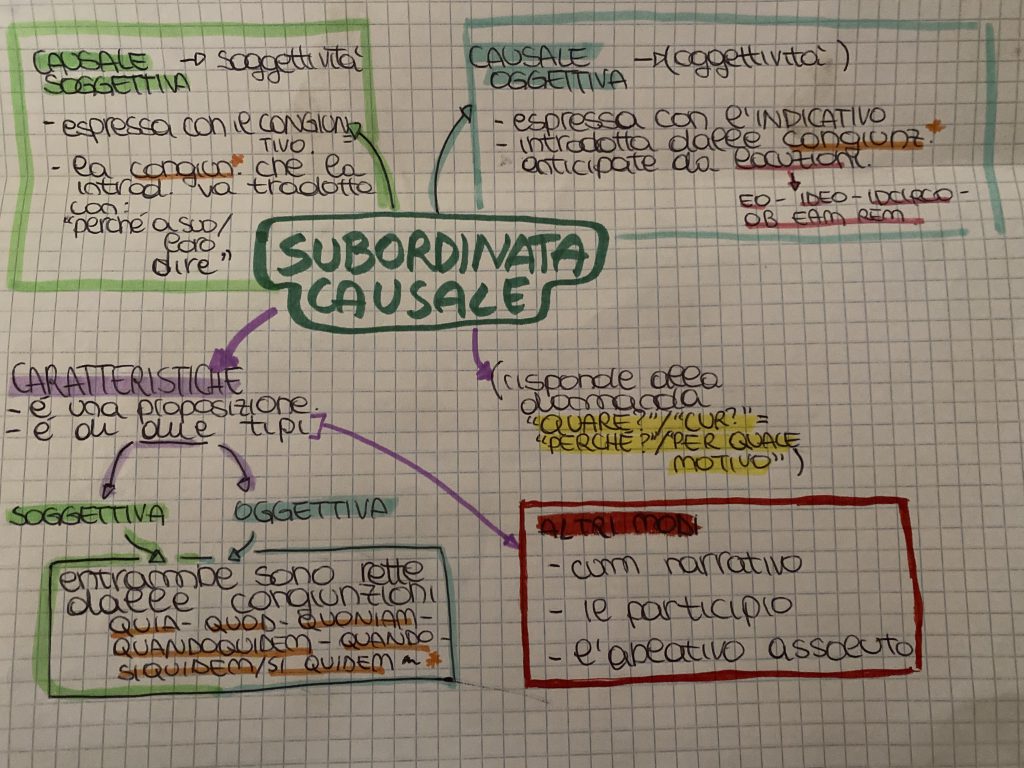 CAUSALE → soggettività
SOGGETTIVA
- espressa con il CONGIUN=
TIVO.
- la congiun.* che la
introd. va tradotta
con:
"perché a suo/
loro
dire"
CAUSALE → (oggettività)
OGGETTIVA
- espressa con l'INDICATIVO
- introdotta dalle congiunz.*
anticipate da locuzioni.
EO - IDEO - IDCIRCO -
OB EAM REM
SUBORDINATA
CAUSALE
CARATTERISTICHE
- è una proposizione.
- è di due tipi
(risponde alla
domanda
"QUARE?"/"CUR?"=
"PERCHÉ?"/"PER QUALE
MOTIVO")
SOGGETTIVA OGGETTIVA
entrambe sono rette
dalle congiunzioni
QUIA - QUOD - QUONIAM -
QUANDOQUIDEM - QUANDO -
SIQUIDEM/SI QUIDEM ~ *
ALTRI MODI
- cum narrativo
- il participio
- l'ablativo assoluto